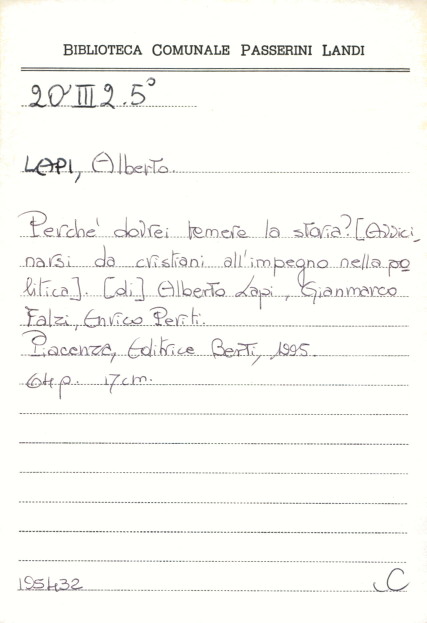 BIBLIOTECA COMUNALE PASSERINI LANDI
20 III 2.5°
LAPI, Alberto.
Perché dovrei temere la storia? [Avvici
narsi da cristiani all'impegno nella po
litica]. [di] Alberto Lapi, Gianmarco
Falzi, Enrico Periti.
Piacenza, Editrice Berti, 1995.
64 p. 17 cm.
195432 C